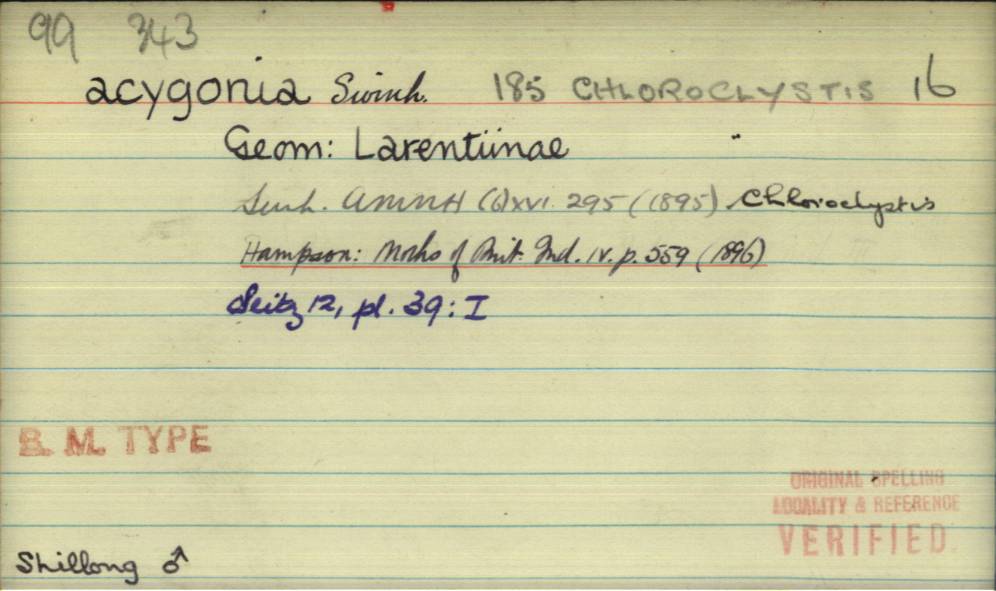 99 343
acygonia Swinh. 185 CHLOROCLYSTIS 16
Geom: Larentiinae "
Swh. AMNH (6) XVI. 295 (1895) Chloroclystis
Hampson: Moths of Brit. Ind. IV. p. 559 (1896)
Seitz 12, pl. 39: I
B. M. TYPE
ORIGINAL SPELLING
LOCALITY & REFERENCE
VERIFIED.
Shillong ♂